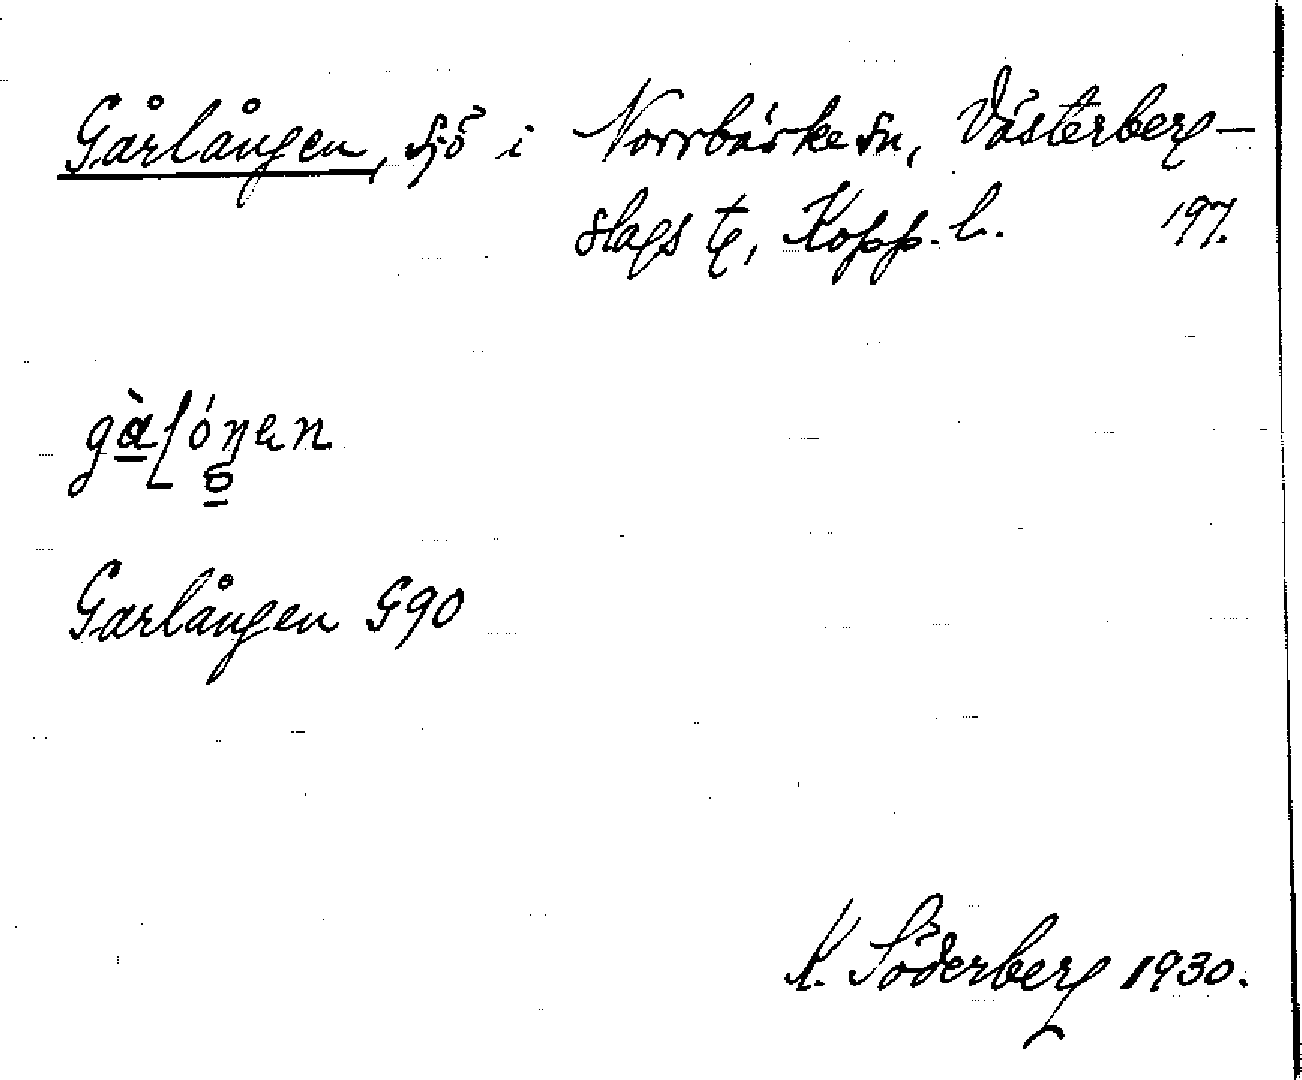 Gårlången, sjö i Norrbärke sn, Västerberg-
slags tg, Kopp. l. 197.
Garlången G90
K. Söderberg 1930.